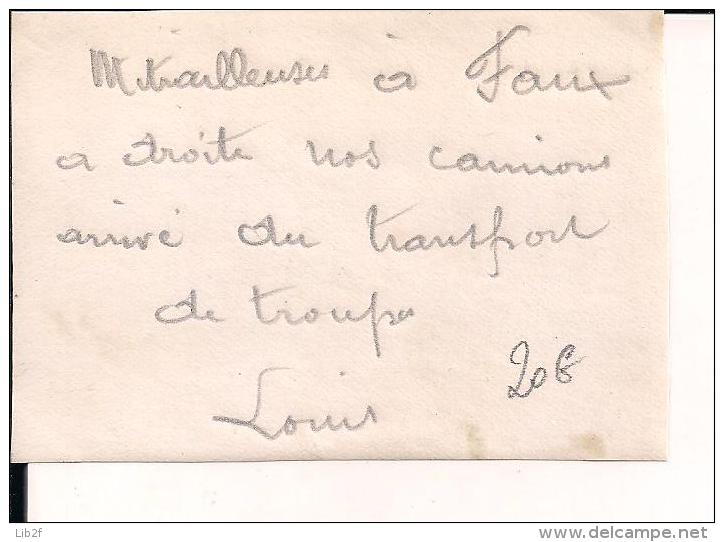 Mitrailleuses à Faux
a droite nos camions
arrivé du transport
de troupes
Louis
20€
Lib2f
www.delcampe.net